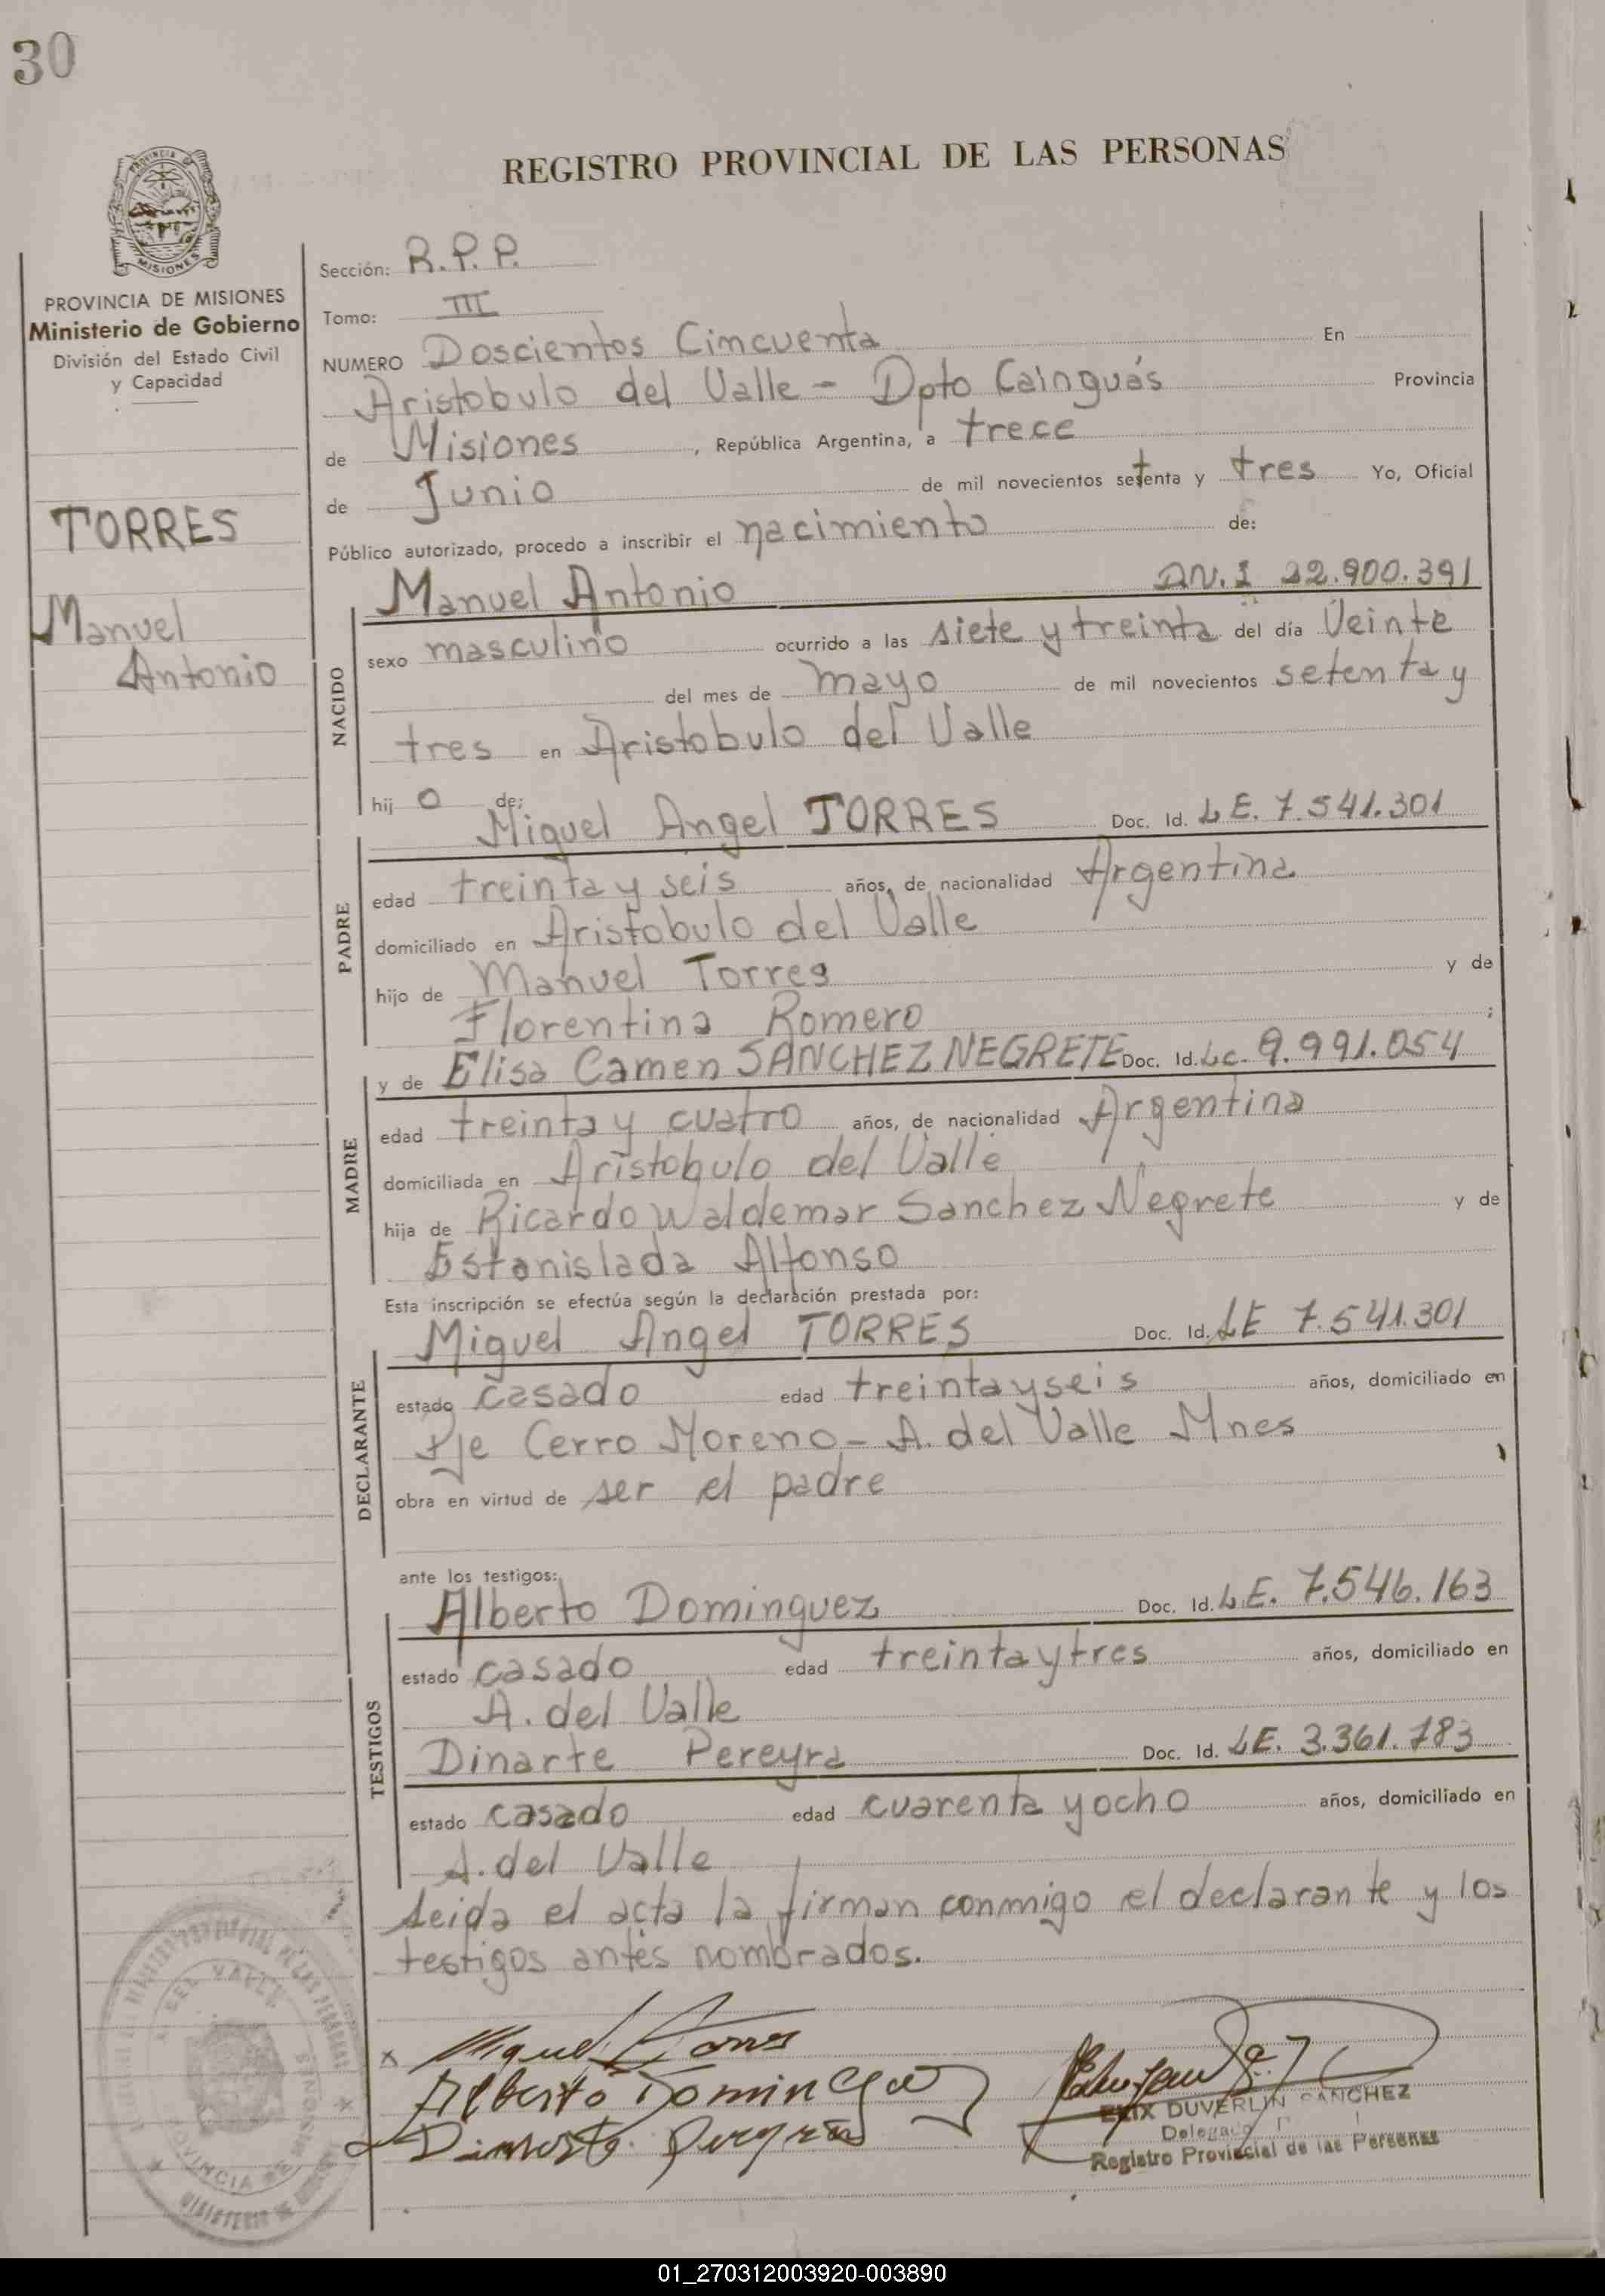 30
REGISTRO PROVINCIAL DE LAS PERSONAS
MISIONES
PROVINCIA DE MISIONES
Ministerio de Gobierno
División del Estado Civil
y Capacidad
TORRES
Manuel
Antonio
Sección: R.P.P.
Tomo: III
NUMERO Doscientos Cincuenta En
Aristobulo del Valle - Dpto Cainguás Provincia
de Misiones, República Argentina, a trece
de Junio de mil novecientos setenta y tres Yo, Oficial
Público autorizado, procedo a inscribir el nacimiento de:
Manuel Antonio D.N.I 22.900.391
NACIDO
sexo masculino ocurrido a las siete y treinta del día Veinte
del mes de mayo de mil novecientos setenta y
tres en Aristobulo del Valle
hij o de:
Miguel Angel TORRES Doc. Id. L.E. 7.541.301
PADRE
edad treinta y seis años, de nacionalidad Argentina
domiciliado en Aristobulo del Valle
hijo de Manuel Torres y de
Florentina Romero ;
y de Elisa Camen SANCHEZ NEGRETE Doc. Id. Lc. 9.991.054
MADRE
edad treinta y cuatro años, de nacionalidad Argentina
domiciliada en Aristobulo del Valle
hija de Ricardo Waldemar Sanchez Negrete y de
Estanislada Alfonso
Esta inscripción se efectúa según la declaración prestada por:
Miguel Angel TORRES Doc. Id. LE 7.541.301
DECLARANTE
estado casado edad treinta y seis años, domiciliado en
Pje Cerro Moreno - A. del Valle Mnes
obra en virtud de ser el padre
ante los testigos:
Alberto Dominguez Doc. Id. L.E. 7.546.163
TESTIGOS
estado casado edad treinta y tres años, domiciliado en
A. del Valle
Dinarte Pereyra Doc. Id. LE. 3.361.783
estado casado edad cuarenta y ocho años, domiciliado en
A. del Valle
Leida el acta la firman conmigo el declarante y los
testigos antes nombrados.
x Miguel A Torres
Alberto Dominguez
Dinarte Pereyra
DUVERLIN SANCHEZ
Delegado
Registro Provincial de las Personas
01_270312003920-003890